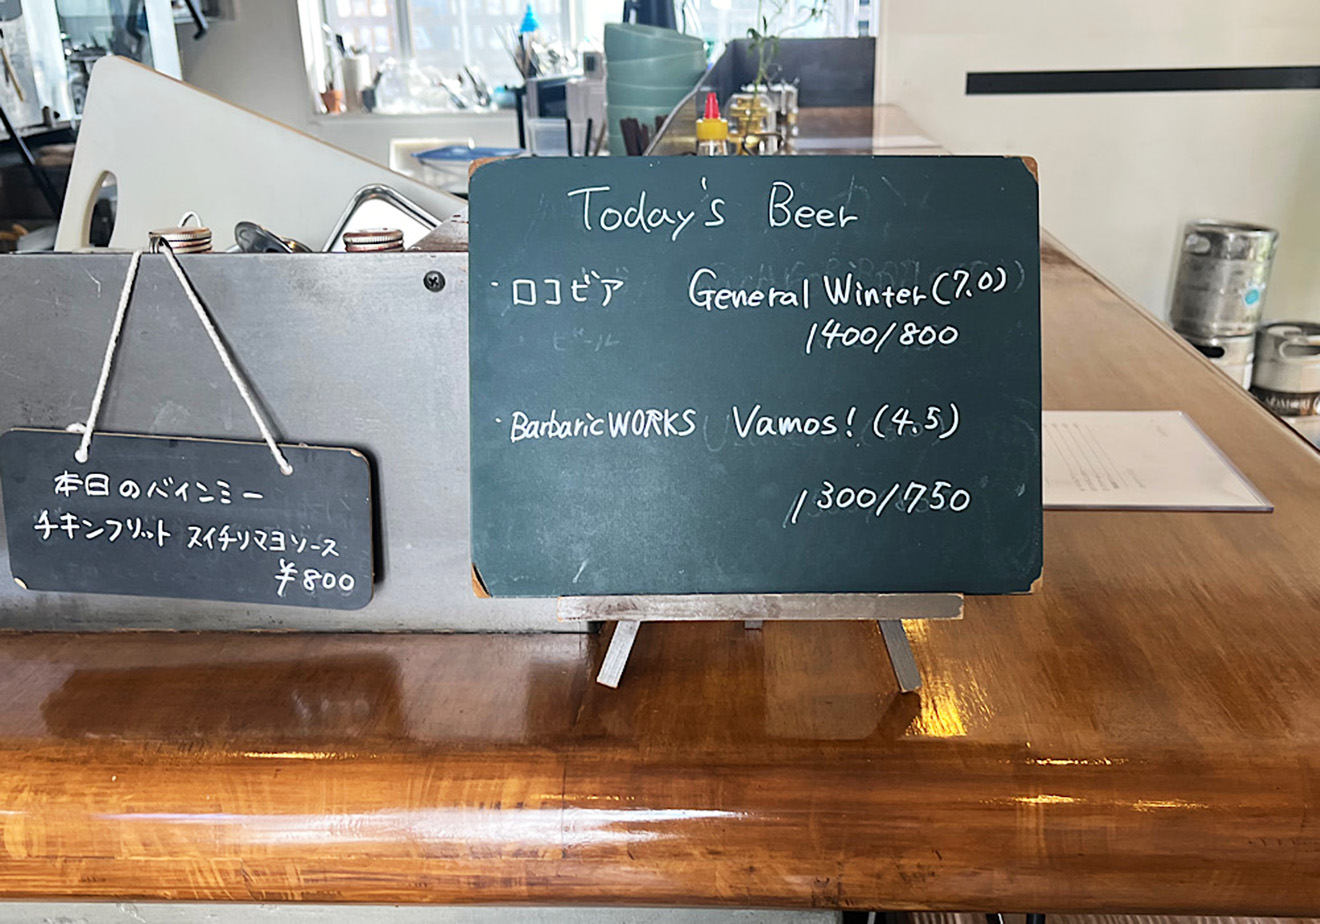 Today's Beer
・ロコビア General Winter (7.0)
1400/800
・BarbaricWORKS Vamos! (4.5)
1300/750
本日のバインミー
チキンフリット スイチリマヨソース
¥800